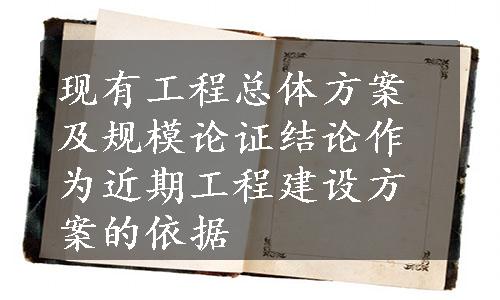 现有工程总体方案
及规模论证结论作
为近期工程建设方
案的依据